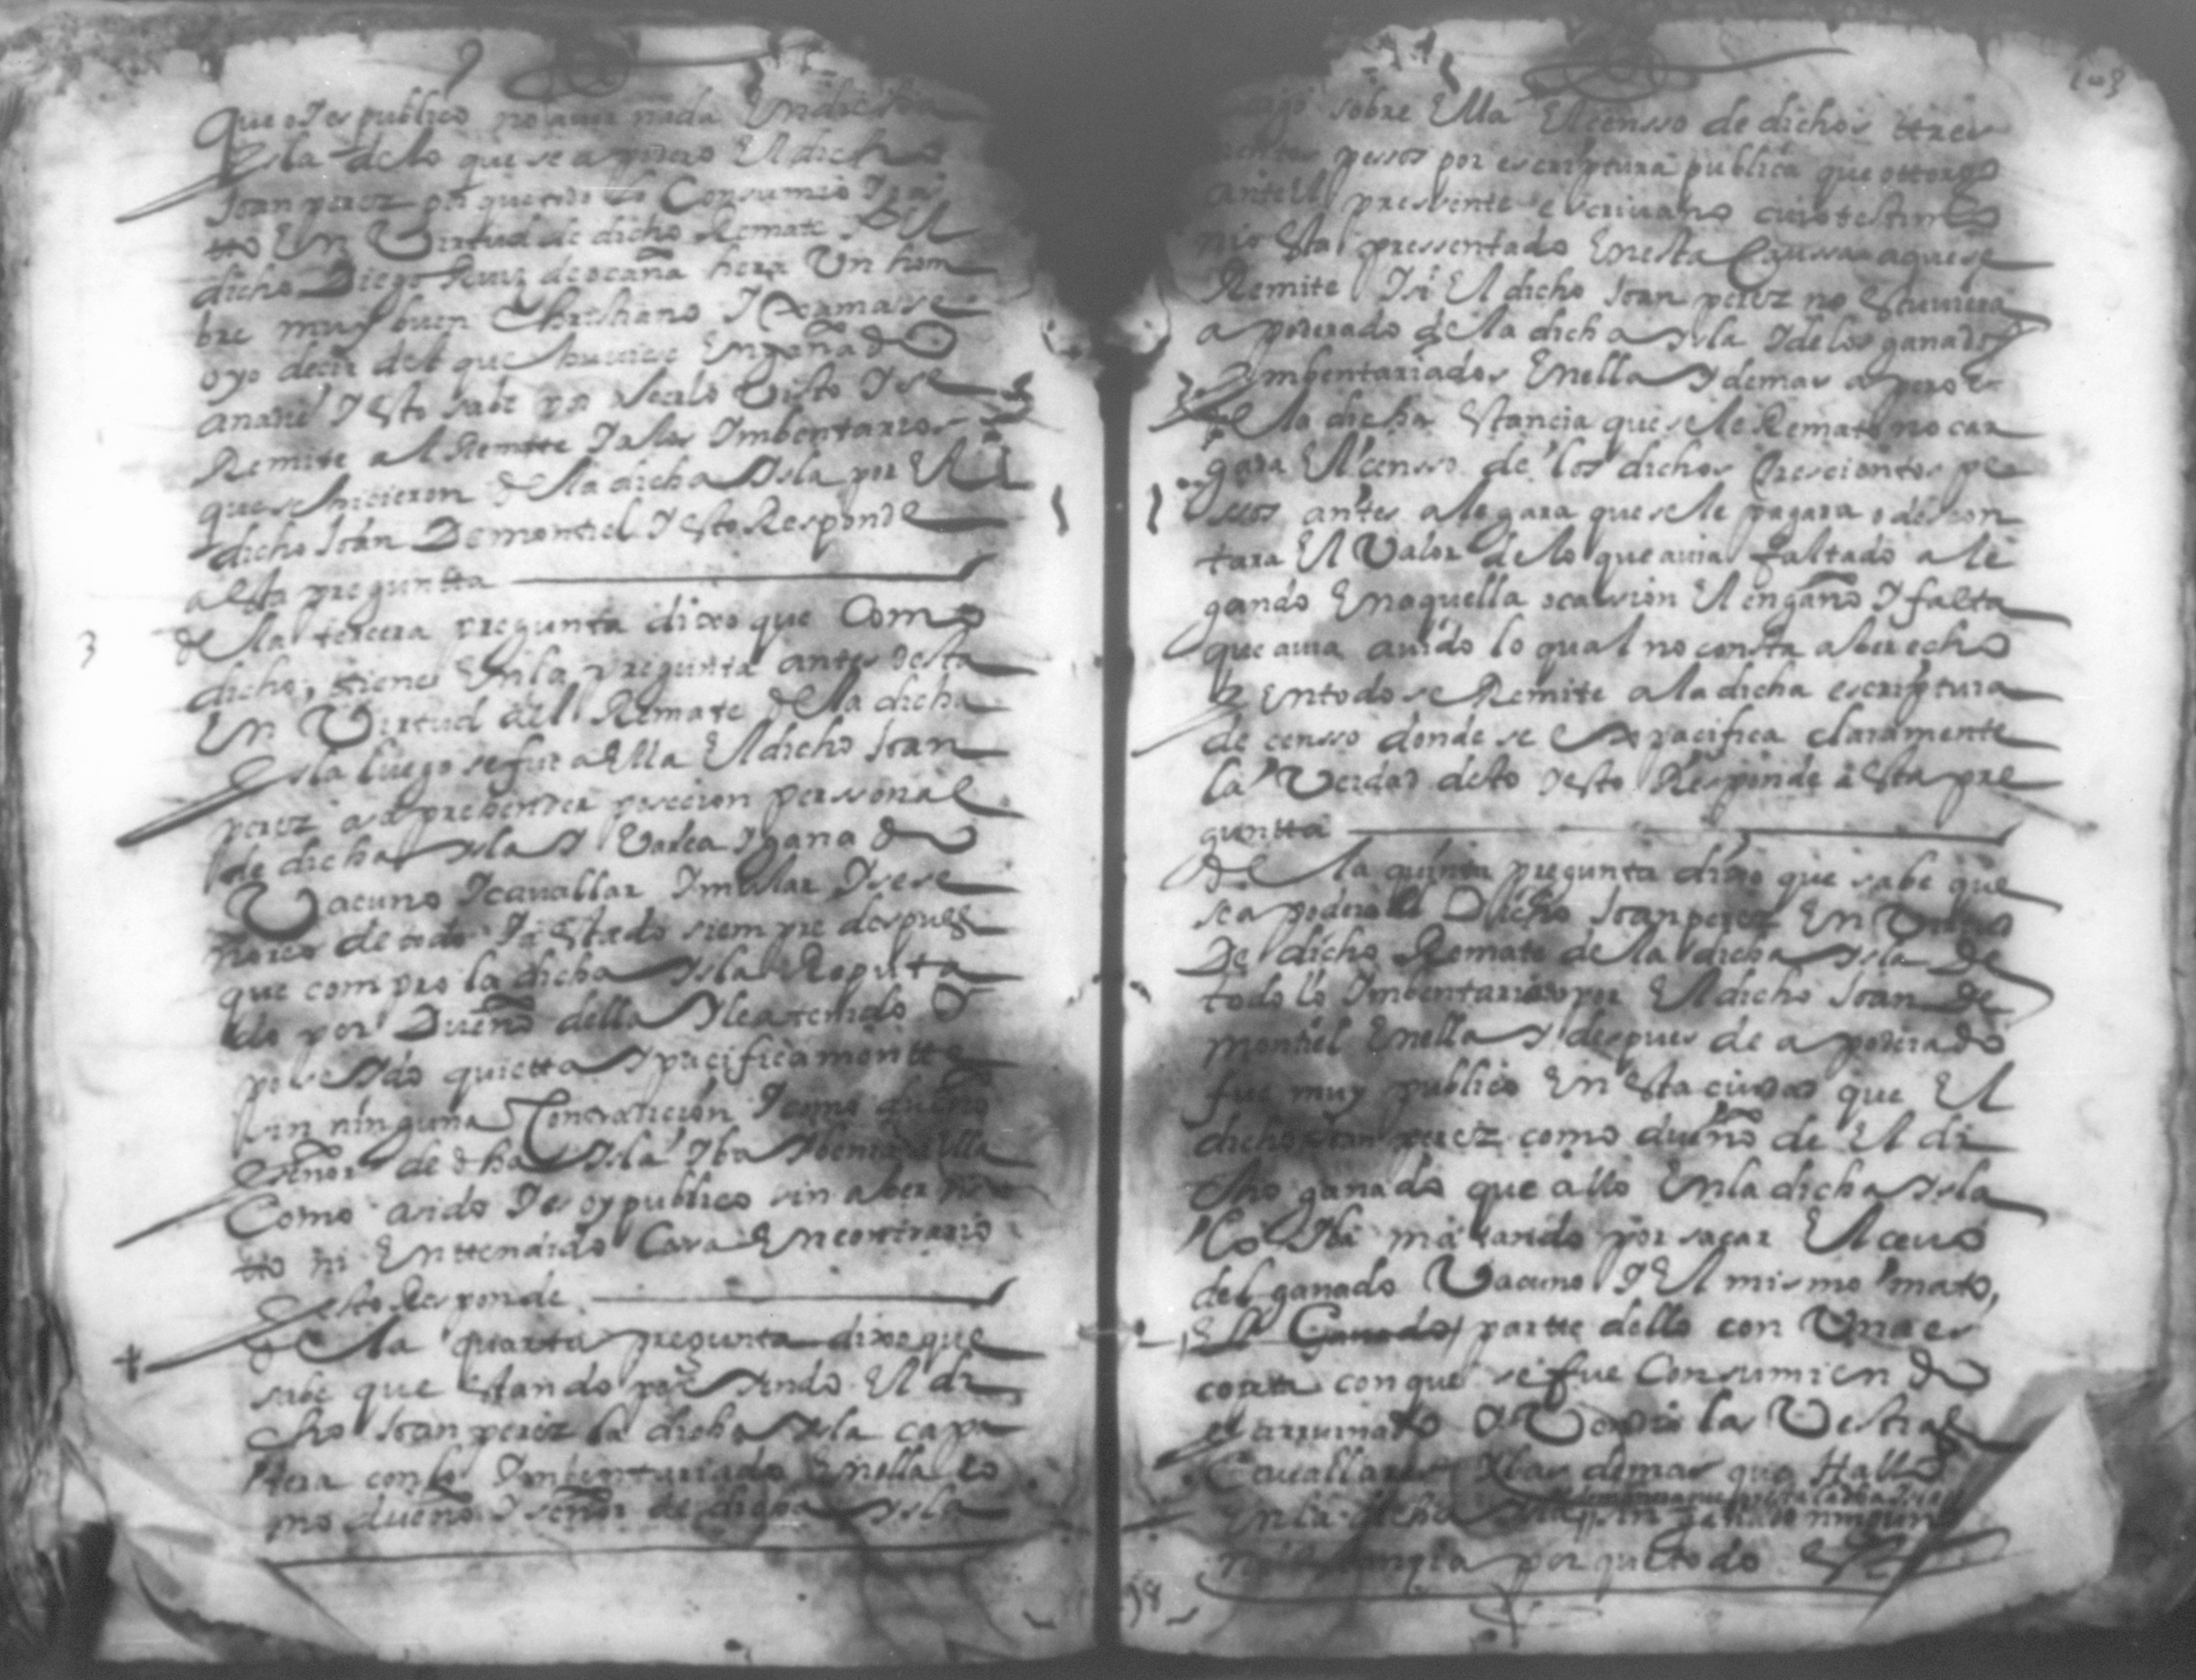 que oy es publico no auer nada En dicha
ysla de lo que se apodero El dicho
Joan perez por que todo lo Consumio
tto En Virtud de dicho Remate El
dicho Diego Ruiz de ocaña hera Un hom
bre muy buen Christiano y Jamas se
oyo decir del que huuiese Engañado
a nadie y Esto sabe por Averlo Visto y se
Remite al Remate y a los Imbentarios
que se hicieron de la dicha ysla por El
dicho Joan De montiel y Esto Responde
a Esta pregunta
3 de la tercera pregunta dixo que Como
dicho, tiene En la pregunta antes desta
En Virtud del Remate de la dicha
ysla luego se fue a Ella El dicho Joan
perez a aprehender posecion perssonal
de dicha ysla y ganado
Vacuno y cauallar y mular y se se
ñoreo de todo y a Estado siempre despues
que compro la dicha ysla Reputa
do por Dueño della y le a tenido
poseydo quietta y pacificamentte
sin ninguna Contradicion y como dueño
y señor de dha ysla yba y benia a Ella
Como a sido y es oy publico sin aber
tto ni Enttendido Cosa En contrario
y esto Responde
+ de la quarta pregunta dixo que
sabe que Estando poseyendo El di
cho Joan perez la dicha ysla
con lo Imbentariado En ella co
mo dueño y señor de dicha ysla
cargo sobre Ella El censso de dichos ttres
cientos pessos por escriptura publica que ottorgo
ante El pressente escriuano cuio testimo
nio Esta pressentado En esta Caussa a que se
Remite y si El dicho Joan perez no Estuuiera
apoderado de la dicha ysla y de los ganados
Imbentariados En ella y demas aperos
de la dicha Estancia que se le Remato no car
gara El censso de los dichos trescientos pe
ssos antes alegara que se le pagara o descon
tara El Valor de lo que auia faltado ale
gando En aquella ocassion El engaño y falta
que auia auido lo qual no consta aber echo
y En todo se Remite a la dicha escriptura
de censso donde se Expacifica claramente
la Verdad desto y esto Responde a Esta pre
guntta
de la quinta pregunta dixo que sabe que
se apodero El Dicho Joan perez En Virtud
De dicho Remate de la dicha ysla De
todo lo Imbentariado por El dicho Joan De
montiel En ella y despues de apoderado
fue muy publico En Esta ciudad que El
dicho Joan perez como dueño de El di
cho ganado que allo En la dicha ysla
lo Iba matando por sacar El ceuo
del ganado Vacuno y El mismo mato,
El Ganado partte dello con Una es
copeta con que se fue Consumiendo
y arruinado y Vendio las Vestias
Cauallares y las demas que Hallo
En la dicha ysla sin ganado ninguno
por que todo